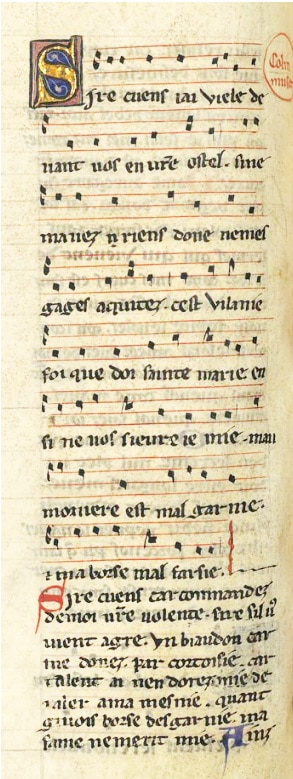 Colin
muse
Sire cuens iai viele de
uant uos en urẽ ostel. si ne
mauez q̃ riens done ne mes
gages aquitez. cest vilanie
foi que doi sainte marie. en
si ne uos sieure ie mie. mau
moniere est mal garnie.
⁊ ma borse mal farsie.
Sire cuens car commandez
de moi urẽ volente. sire sil u
uient a gre. vn biau don car
me donez par cortoisie. car
talent ai nen dotez mie de
raler a ma mesnie. quant
g̃ uois borse desgarnie. ma
fame ne me rit mie. Ainz